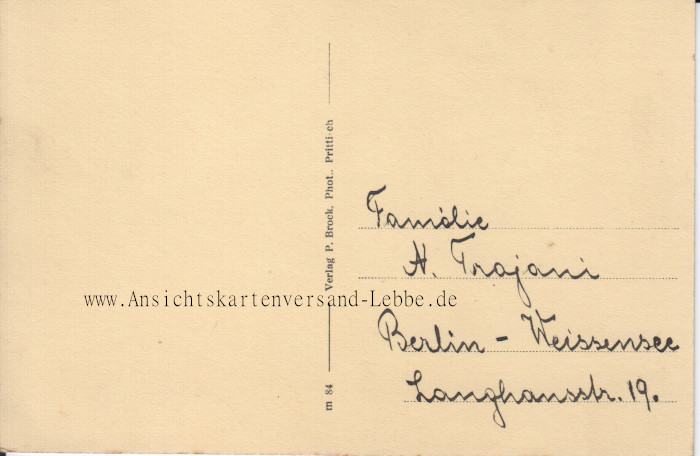 m 84 Verlag P. Brock, Phot., Prittisch
www.Ansichtskartenversand-Lebbe.de
Familie
A. Trajani
Berlin - Weissensee
Langhansstr. 19.